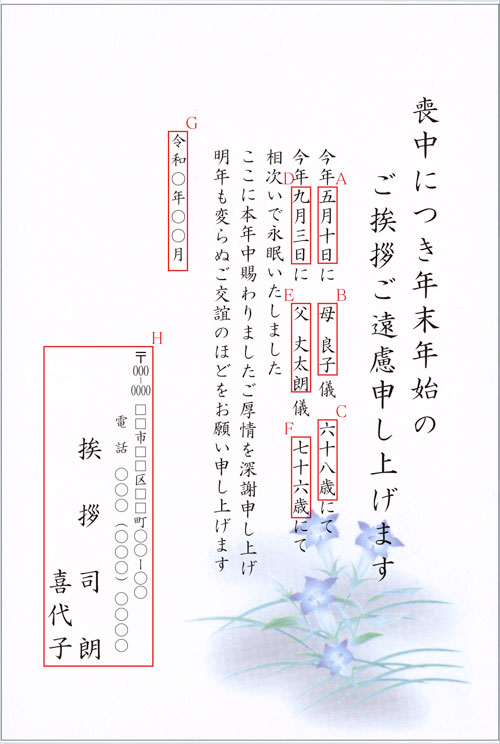 喪中につき年末年始の
ご挨拶ご遠慮申し上げます
A
今年五月十日に
B
母 良子 儀
C
六十八歳にて
D
今年九月三日に
E
父 丈太朗 儀
F
七十六歳にて
相次いで永眠いたしました
ここに本年中賜わりましたご厚情を深謝申し上げ
明年も変らぬご交誼のほどをお願い申し上げます
G
令和〇年〇〇月
H
〒000-0000
□□市□□区□□町〇〇ー〇〇
電話 〇〇〇(〇〇〇〇)〇〇〇〇
挨拶 司朗
喜代子